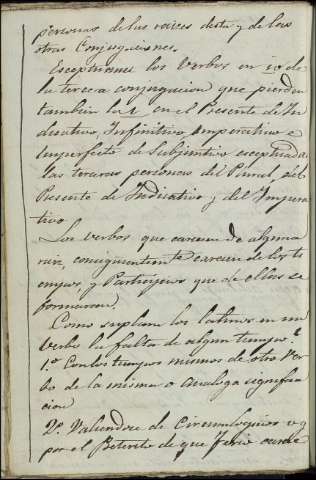 personas de las raices desta y de las
otras Conjugaciones.
Exceptuanse los Verbos en io de
la tercera conjugacion que pierden
tambien la i en el Presente de In
dicativo, Infinitivo Imperativo e
Imperfecto de Subjuntivo exceptuada
las terceras personas del Plural, del
Presente de Indicativo y del Impera
tivo
Los verbos que carecen de alguna
raiz, consiguientem.te carecen de los ti
empos, y Participios que de ellas se
formaran.
Como suplian los latinos en un
verbo la falta de algun tiempo?
1.o Con los tiempos mismos de otro Ver
bo de la misma o analoga significa
cion
2.o Valiendose de Circumloquios v g
por el Preterito de que Ferio carece